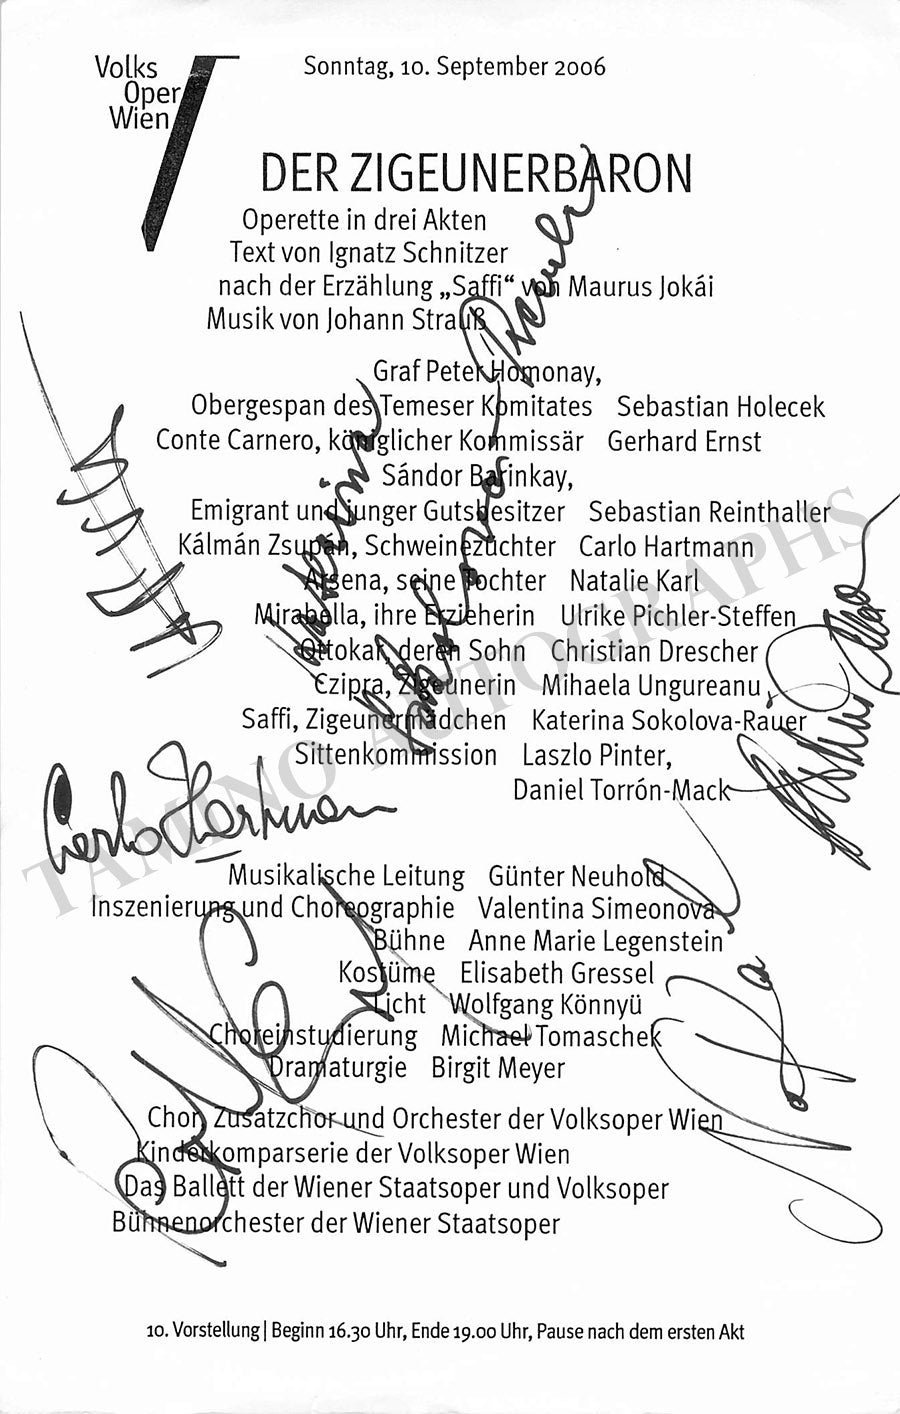 Volks
Oper
Wien
Sonntag, 10. September 2006
DER ZIGEUNERBARON
Operette in drei Akten
Text von Ignatz Schnitzer
nach der Erzählung „Saffi“ von Maurus Jokái
Musik von Johann Strauß
Graf Peter Homonay,
Obergespan des Temeser Komitates Sebastian Holecek
Conte Carnero, königlicher Kommissär Gerhard Ernst
Sándor Barinkay,
Emigrant und junger Gutsbesitzer Sebastian Reinthaller
Kálmán Zsupán, Schweinezüchter Carlo Hartmann
Arsena, seine Tochter Natalie Karl
Mirabella, ihre Erzieherin Ulrike Pichler-Steffen
Ottokar, deren Sohn Christian Drescher
Czipra, Zigeunerin Mihaela Ungureanu,
Saffi, Zigeunermädchen Katerina Sokolova-Rauer
Sittenkommission Laszlo Pinter,
Daniel Torrón-Mack
Carlo Hartmann
Musikalische Leitung Günter Neuhold
Inszenierung und Choreographie Valentina Simeonova
Bühne Anne Marie Legenstein
Kostüme Elisabeth Gressel
Licht Wolfgang Könnyü
Choreinstudierung Michael Tomaschek
Dramaturgie Birgit Meyer
Chor, Zusatzchor und Orchester der Volksoper Wien
Kinderkomparserie der Volksoper Wien
Das Ballett der Wiener Staatsoper und Volksoper
Bühnenorchester der Wiener Staatsoper
10. Vorstellung | Beginn 16.30 Uhr, Ende 19.00 Uhr, Pause nach dem ersten Akt
TAMINO AUTOGRAPHS